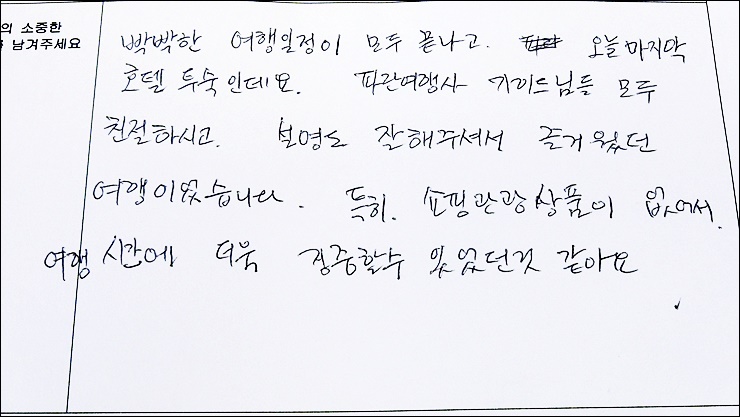 의 소중한
남겨주세요
빡빡한 여행일정이 모두 끝나고. 오늘마지막
호텔 투숙인데요. 파란여행사 가이드님들 모두
친절하시고. 설명도 잘해주셔서 즐거웠던
여행이었습니다. 특히. 쇼핑관광상품이 없어서.
여행 시간에 더욱 집중할수 있었던것 같아요